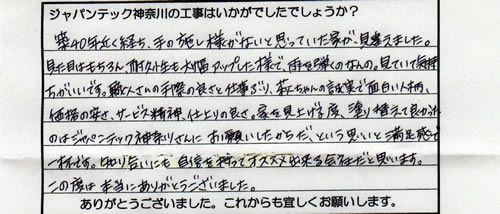 ジャパンテック神奈川の工事はいかがでしたでしょうか？
築40年近く経ち、手の施し様がないと思っていた家が、見違えました。
見た目はもちろん、耐久性も大幅アップした様で、雨を弾くのなんの。見ていて気持
ちがいいです。職人さんの手際の良さと仕事ぶり、
ちゃんの誠実で面白い人柄、
価格の安さ、サービス精神、仕上りの良さ。家を見上げる度、塗り替えて良かった
のはジャパンテック神奈川さんにお願いしたからだ、という思いと満足感で
一杯です。知り合いにも自信を持ってオススメ出来る会社だと思います。
この度は本当にありがとうございました。
ありがとうございました。これからも宜しくお願いします。